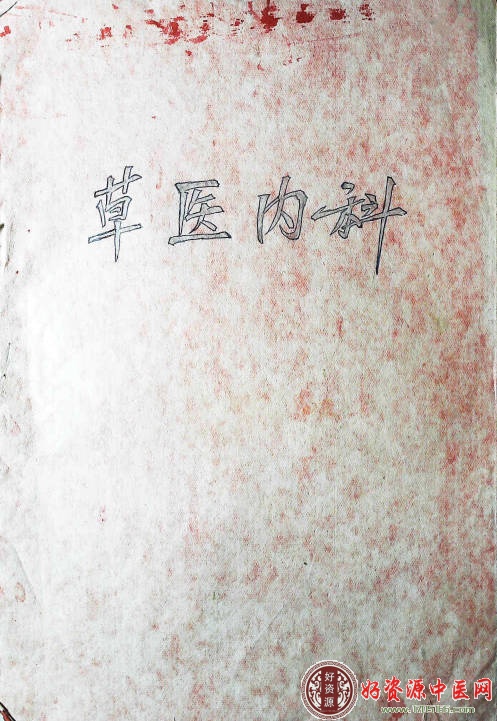 草医内科
好资源
好资源中医网